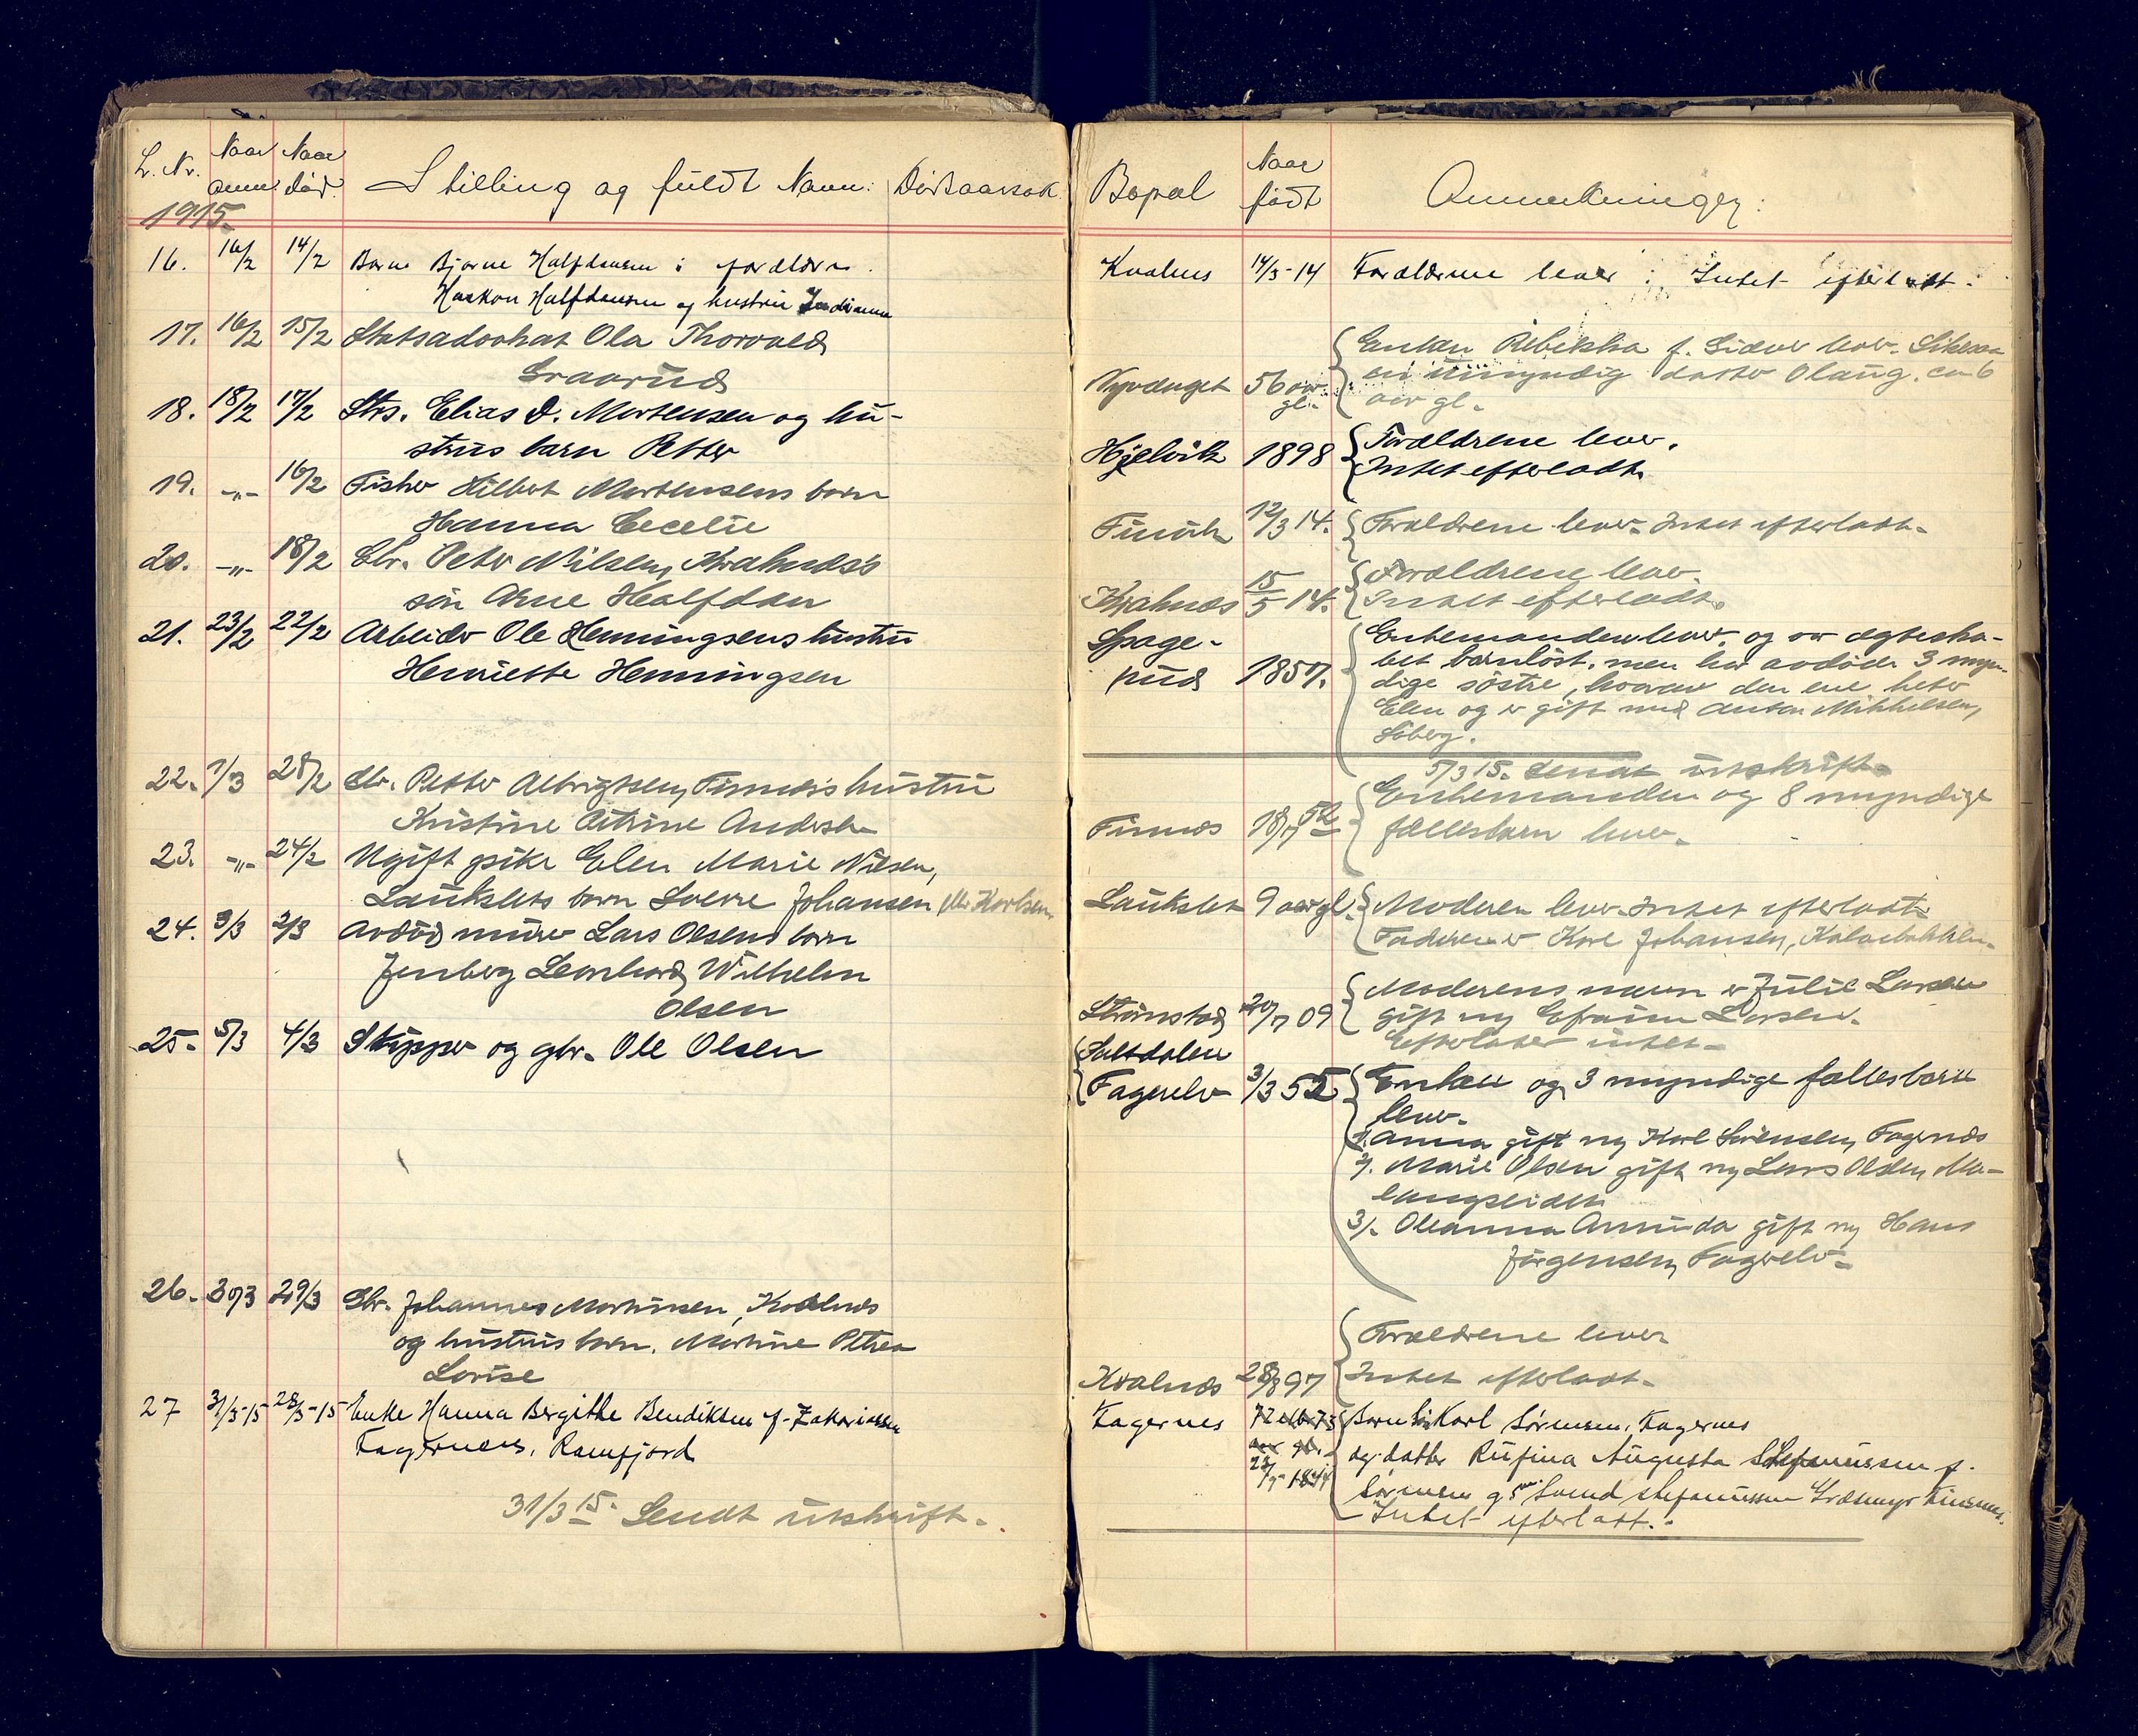 L. Nr. Naar anm. Naar død. Stilling og fuldt Navn: Dødsaarsak
1915.
16. 16/2 14/2 Barn Bjarne Halfdansen : forældre
Haakon Halfdansen og hustru
17. 16/2 15/2 Statsadvokat Ola Thorvald
Graarud
18. 18/2 17/2 Strs. Elias D. Mortensen og hu-
strus barn Petter
19. -"- 16/2 Fisker Hilbert Mortensens barn
Hanna Cecelie
20. -"- 18/2 Gbr. Peter Nilsen, Kvalnes's
søn Arne Halfdan
21. 23/2 22/2 Arbeider Ole Henningsens hustru
Henriette Henningsen
22. 1/3 28/2 Gbr. Petter Albrigtsen, Finnes's hustru
Kristine Petrine
23. -"- 24/2 Ugift pike Elen Marie Nilsen,
Laukslets barn Sverre Johansen eller Karlsen
24. 3/3 2/3 Avdød murer Lars Olsens barn
Jenberg Leonhard Wilhelm
Olsen
25. 5/3 4/3 Skipper og gbr. Ole Olsen
26. 30/3 29/3 Gbr. Johannes Martinsen, Kvalnes
og hustrus barn. Martine Petrea
Lovise
27 31/3-15 28/3-15 Enke Hanna Bergitte Bendiktsen f. Zakariassen
Fagernes, Ramfjord
31/3 15. Sendt utskrift.
Bopæl Naar født Anmerkninger:
Kvalnes 14/5-14 Forældrene lever : Intet efterladt.
Enken Rebekka f. lever. Likesaa
Nyvanget 56 aar gl. en umyndig datter Olaug. ca 6
aar gl.
Hjelvik 1898 Forældrene lever.
Intet efterladt.
Finvik 12/3 14. Forældrene lever. Intet efterladt.
Kvalnes 15/5 14. Forældrene lever.
Intet efterladt.
Spage- Enkemanden lever, og var ægteska-
rud 1857. bet barnløst, men har avdøde 3 myn-
dige søstre, hvorav den ene heter
Elen og er gift med Anton Mikkelsen,
Søberg.
5/3 15. Sendt utskrift.
Finnes 18/7 52 Enkemanden og 8 myndige
fællesbarn lever.
Laukslet 9 aar gl. Moderen lever. Intet efterladt.
Faderen er Karl Johansen,
Strømstad 20/7 09 Moderens navn er Julie Larsen
gift m/ Efraim Larsen.
Efterlater intet.
Saltdalen
Fagerelv 3/3 55 Enken og 3 myndige fællesbarn
lever.
1. Anna gift m/ Karl Sørensen, Fagernes
2. Marie Olsen gift m/ Lars Olsen, Ma-
langseidet
3/. Oleanna Aminda gift m/ Hans
Jørgensen, Fagerelv.
Forældrene lever
Kvalnes 28/8 97 Intet efterladt.
Fagernes 72 eller 73 aar gl. Barn Søn Karl Sørensen, Fagernes
og datter Rufina Augusta Stefanussen f.
Sørensen g. m. Svend Stefanussen
Intet efterladt.